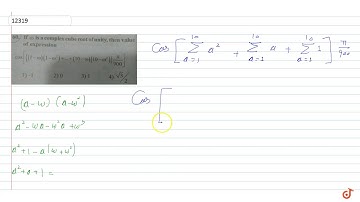 12319
If ω is a complex cube root of unity, then value
of expression
cos [{(1 - ω)(1 - ω²) + ... + (10 - ω)(10 - ω²)} π/900]
1) -1 2) 0 3) 1 4) √3/2
Cos [ 10 Σ a=1 a² + 10 Σ a=1 a + 10 Σ a=1 1 ] π/900
(a - ω) (a - ω²)
a² - ωa - ω²a + ω³
a² + 1 - a(ω + ω²)
a² + a + 1 =
Cos [
doubtnut